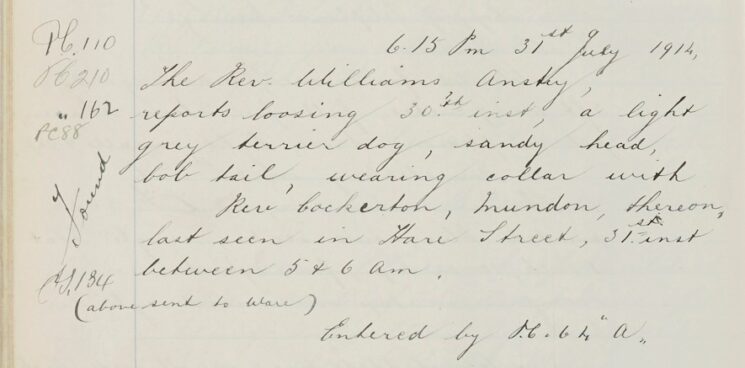 P.C. 110
P.C. 210
" 162
PC 88
Found
6.15 Pm 31st July 1914,
The Rev. Williams Ansty,
reports loosing 30th inst, a light
grey terrier dog, sandy head,
bob tail, wearing collar with
Rev Cockerton, Mundon, thereon,
last seen in Hare Street, 31st inst
between 5 & 6 am.
184
(above sent to Ware)
Entered by P.C. 64 "A"